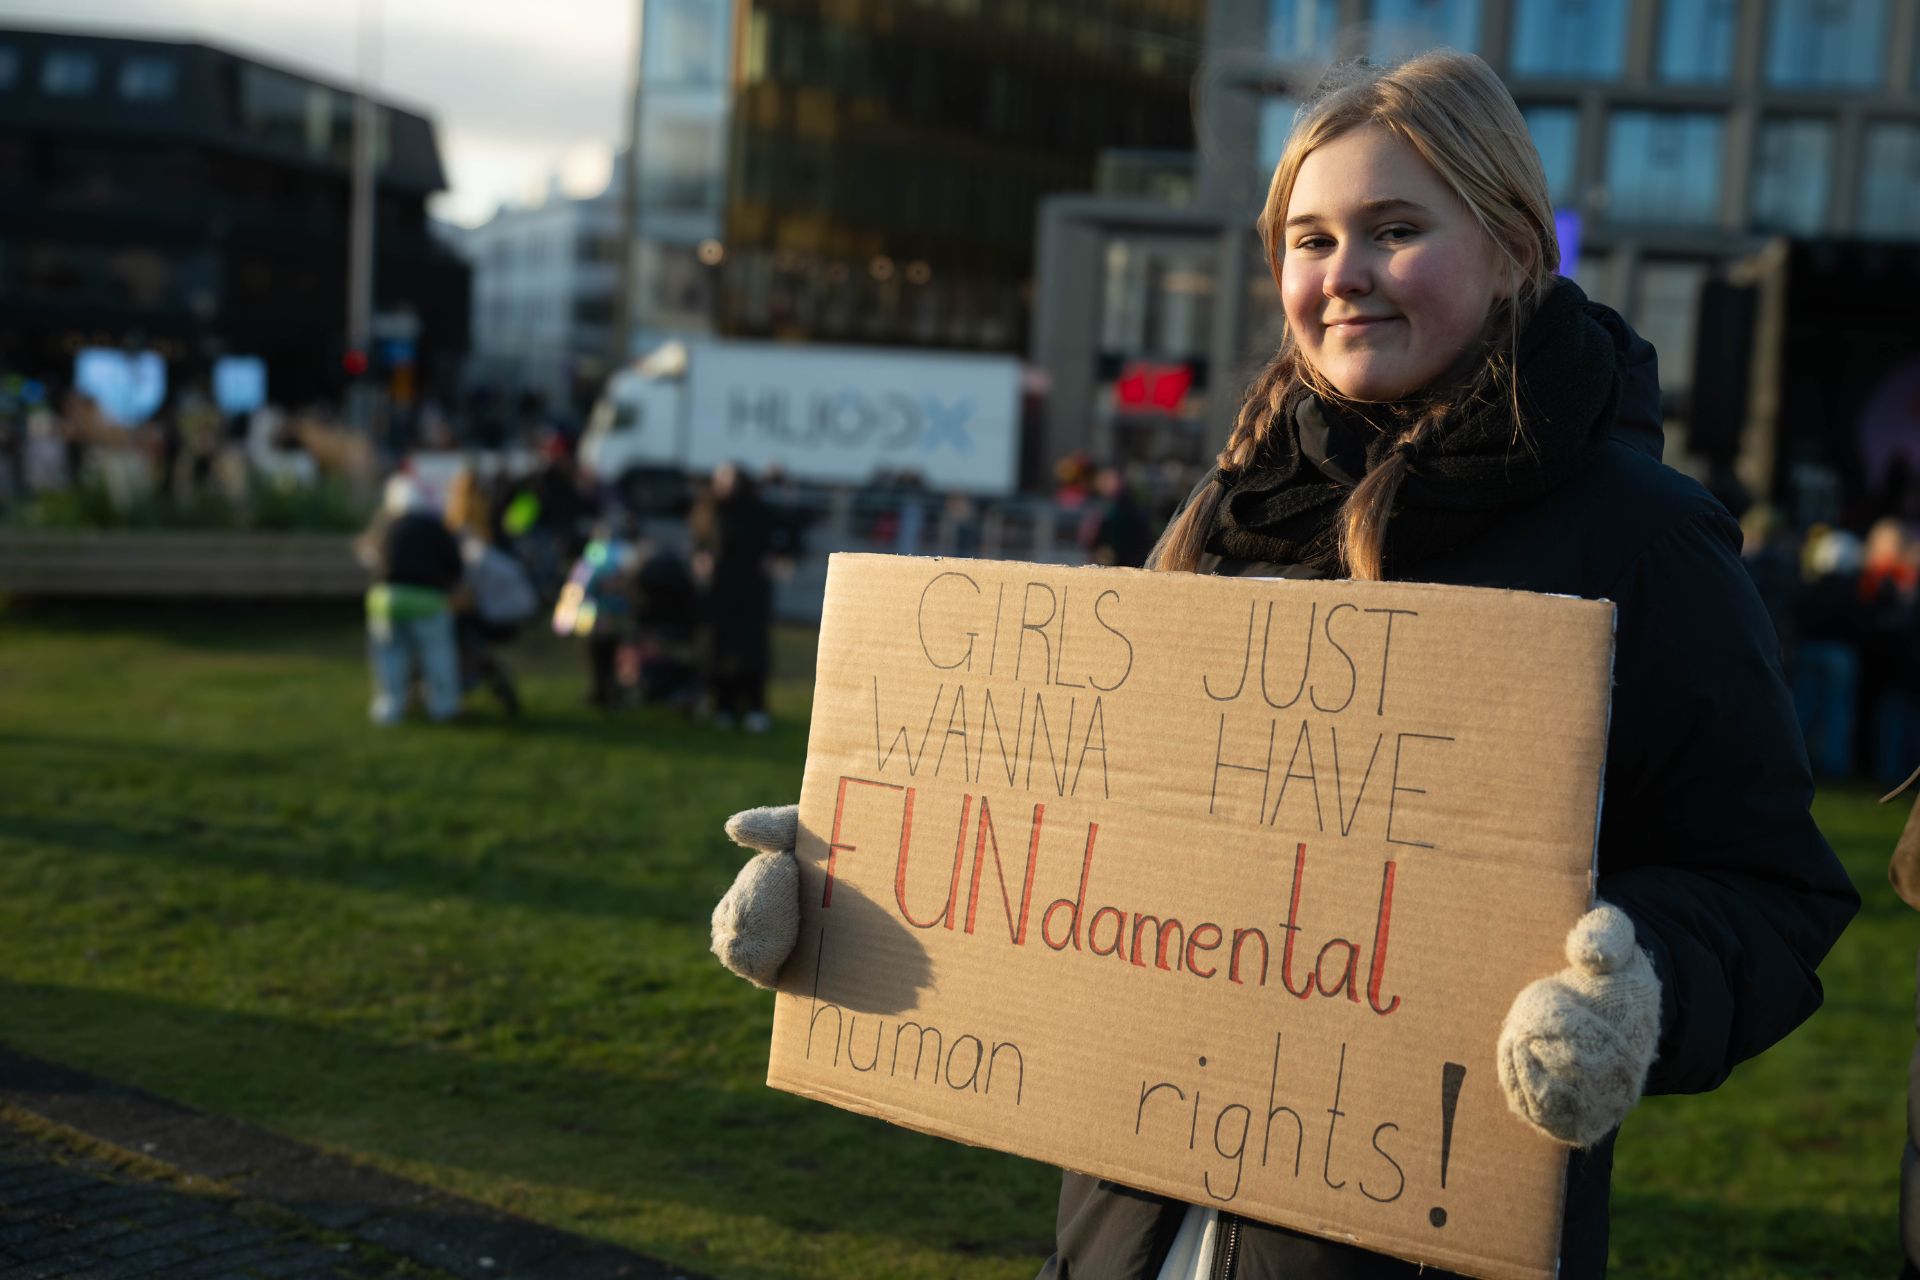 HLJÓÐX
GIRLS JUST
WANNA HAVE
FUNdamental
human rights!